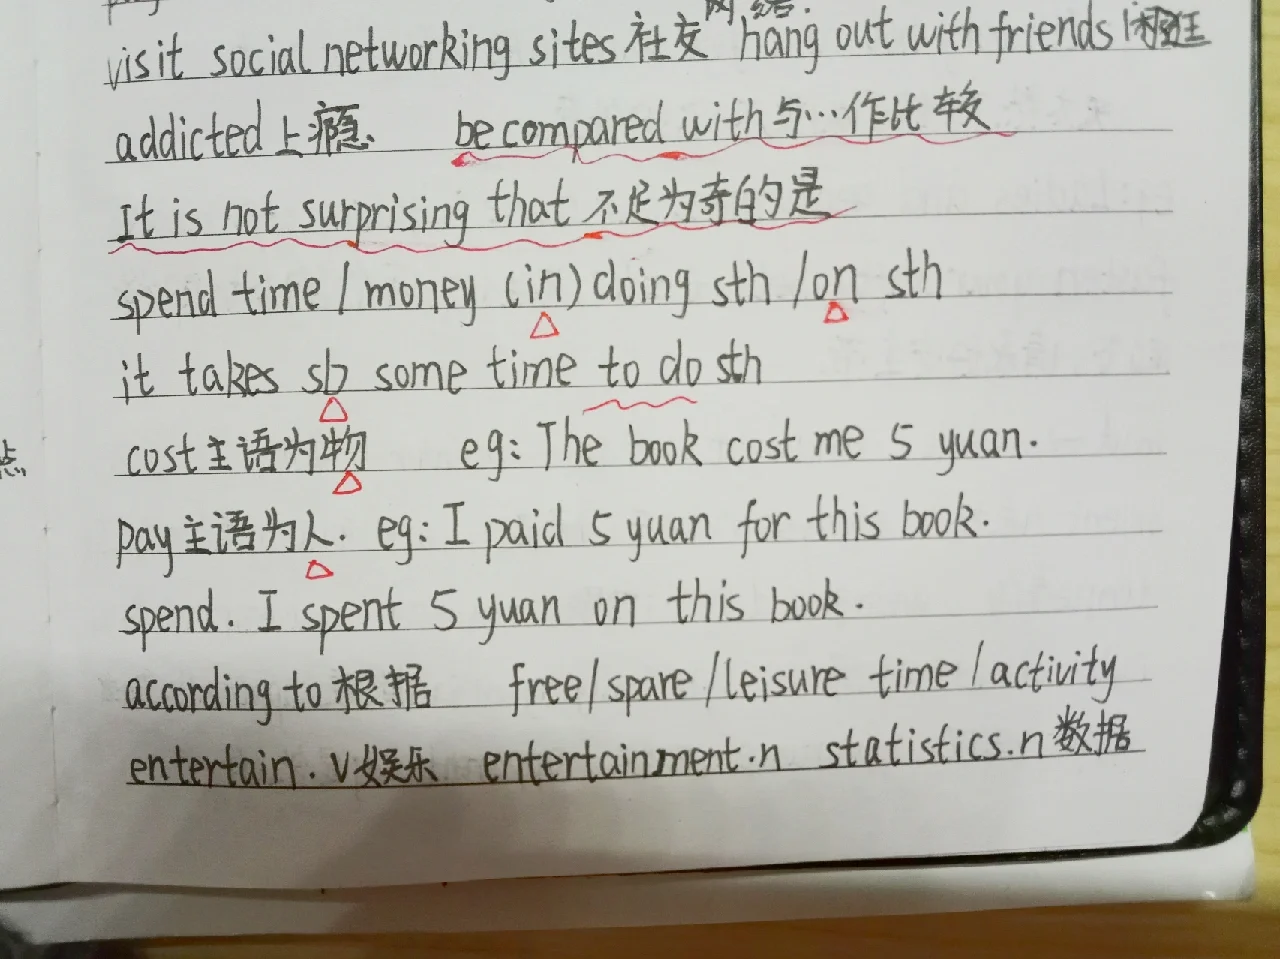 网络.
visit social networking sites 社交 hang out with friends 闲逛
addicted 上瘾. be compared with 与…作比较
It is not surprising that 不足为奇的是
spend time / money (in) doing sth / on sth
it takes sb some time to do sth
cost 主语为物 eg: The book cost me 5 yuan.
pay 主语为人. eg: I paid 5 yuan for this book.
spend. I spent 5 yuan on this book.
according to 根据 free/spare/leisure time / activity
entertain. v 娱乐 entertainment.n statistics.n 数据